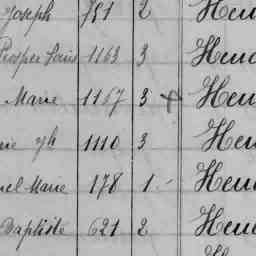 Joseph 751 2 Hen
Prosper Louis 1163 3 Hen
Marie 1167 3 Hen
1110 3 Hen
Marie 178 1 Hen
Baptiste 621 2 Hen